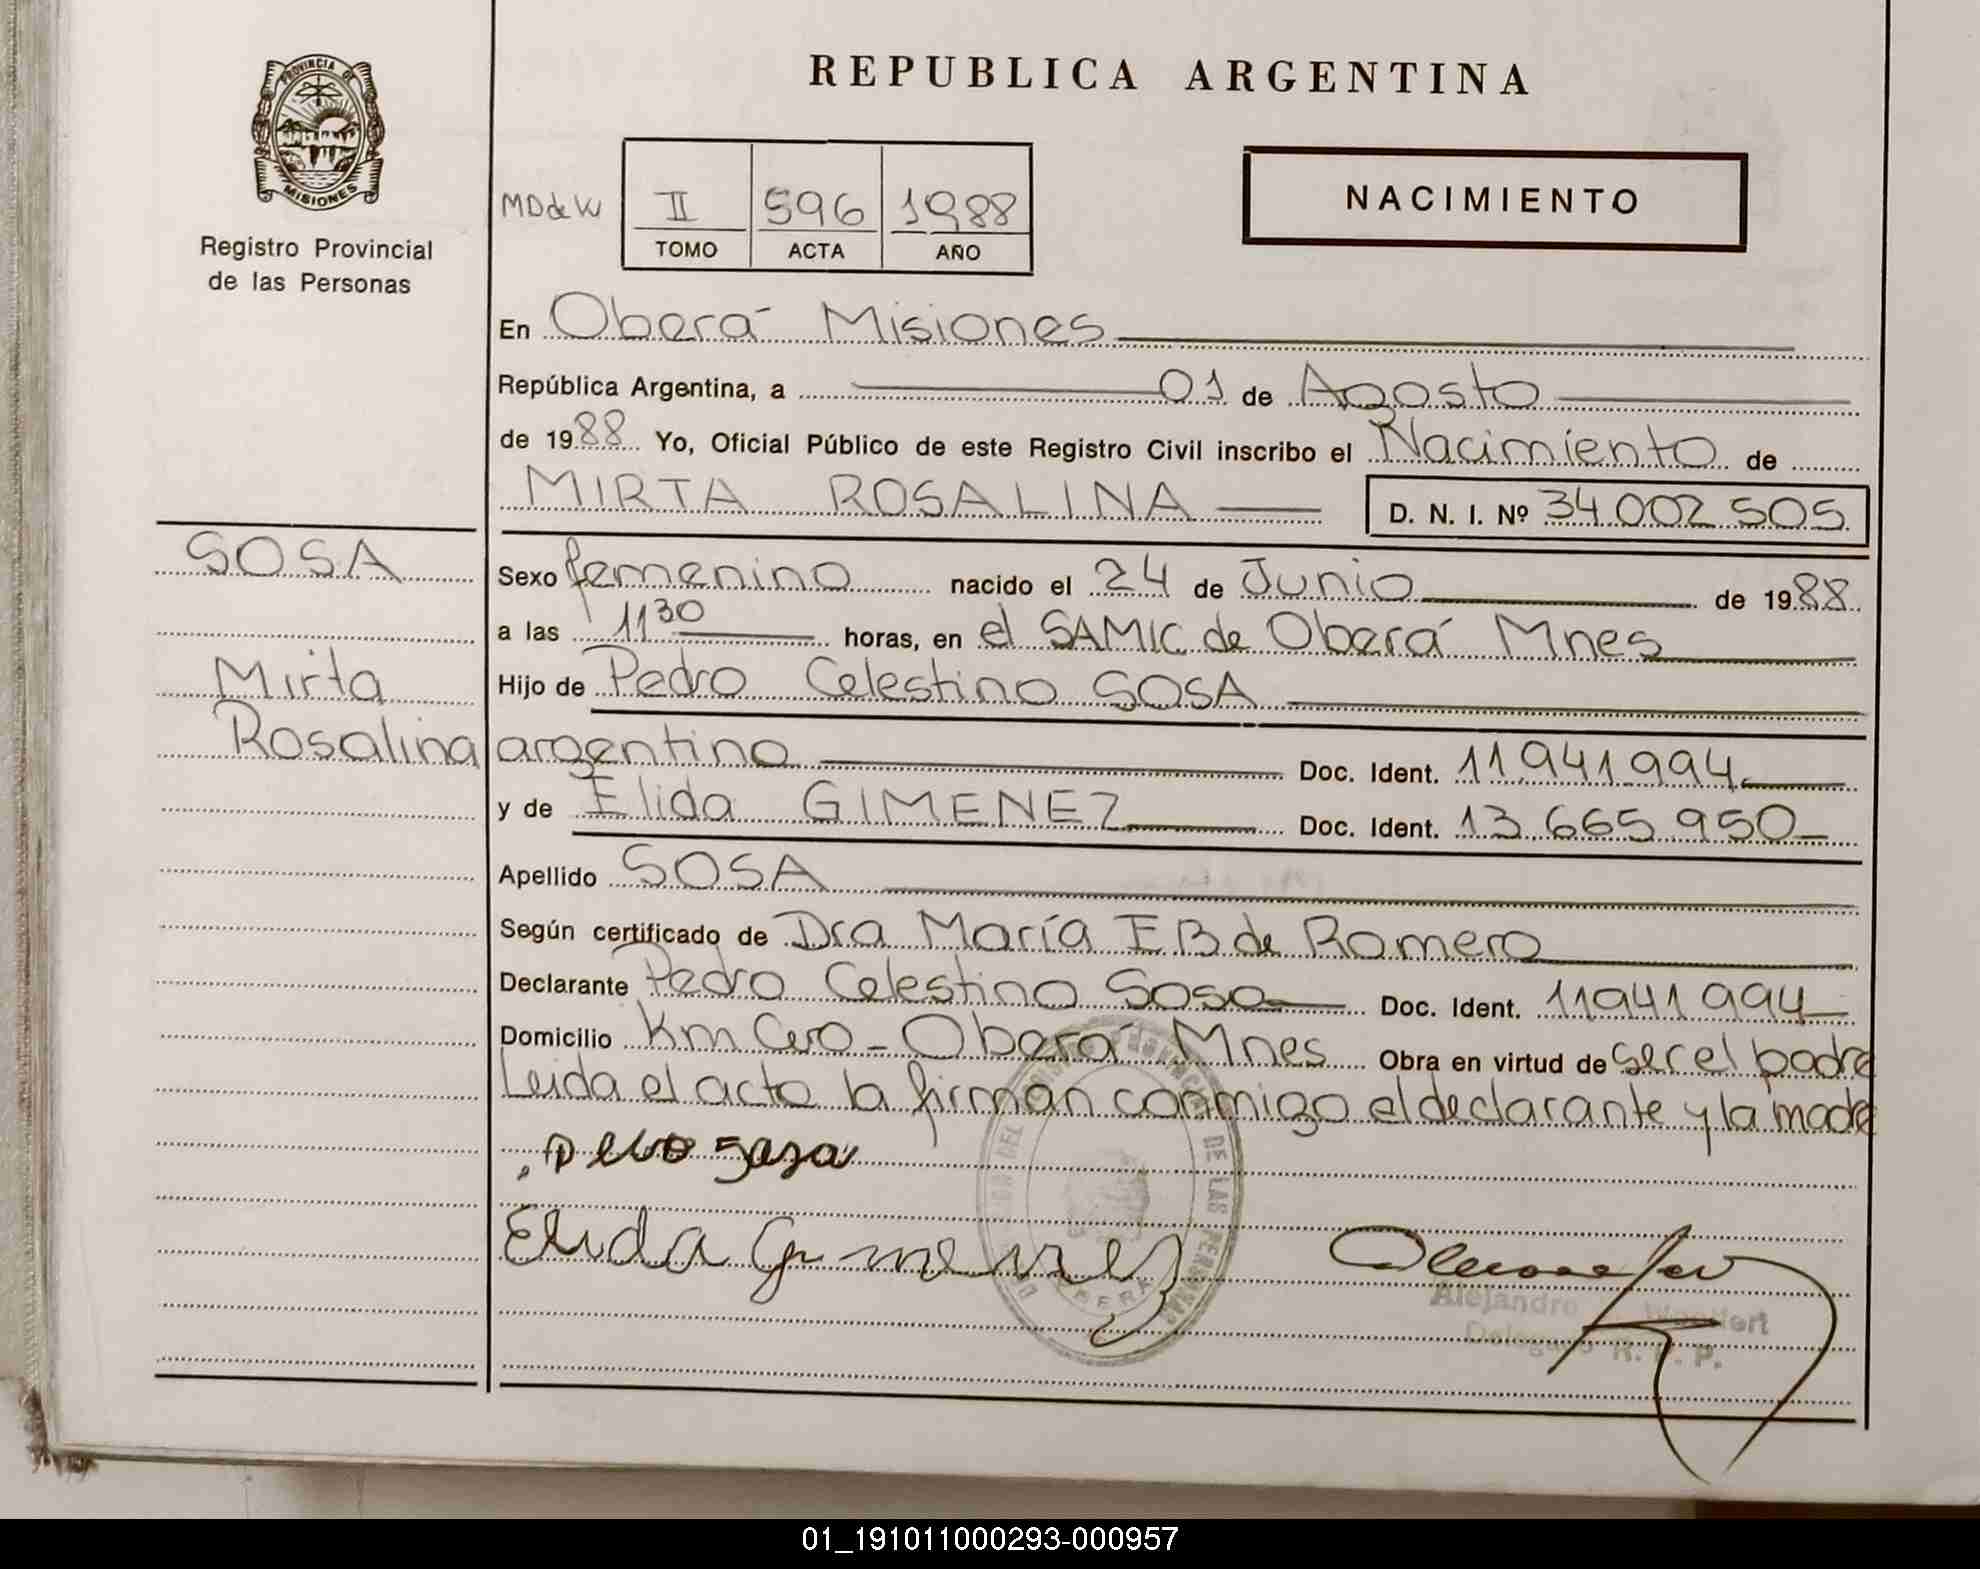 REPUBLICA ARGENTINA
PROVINCIA DE
MISIONES
Registro Provincial
de las Personas
NACIMIENTO
MD de W
II 596 1988
TOMO ACTA AÑO
En Oberá Misiones
República Argentina, a 01 de Agosto
de 1988 Yo, Oficial Público de este Registro Civil inscribo el Nacimiento de
MIRTA ROSALINA D. N. I. Nº 34.002.505
SOSA
Mirta
Rosalina
Sexo femenino nacido el 24 de Junio de 1988
a las 11 30 horas, en el SAMIC de Oberá Mnes
Hijo de Pedro Celestino SOSA
argentino Doc. Ident. 11.941.994
y de Elida GIMENEZ Doc. Ident. 13.665.950
Apellido SOSA
Según certificado de Dra María E B de Romero
Declarante Pedro Celestino Sosa Doc. Ident. 11941994
Domicilio Km Cero - Oberá Mnes Obra en virtud de ser el padre
Leida el acta la firman conmigo el declarante y la madre
Elida Gimenez
DE LAS PERSONAS
OBERA
Alejandro
Delegado R. P. P.
01_191011000293-000957